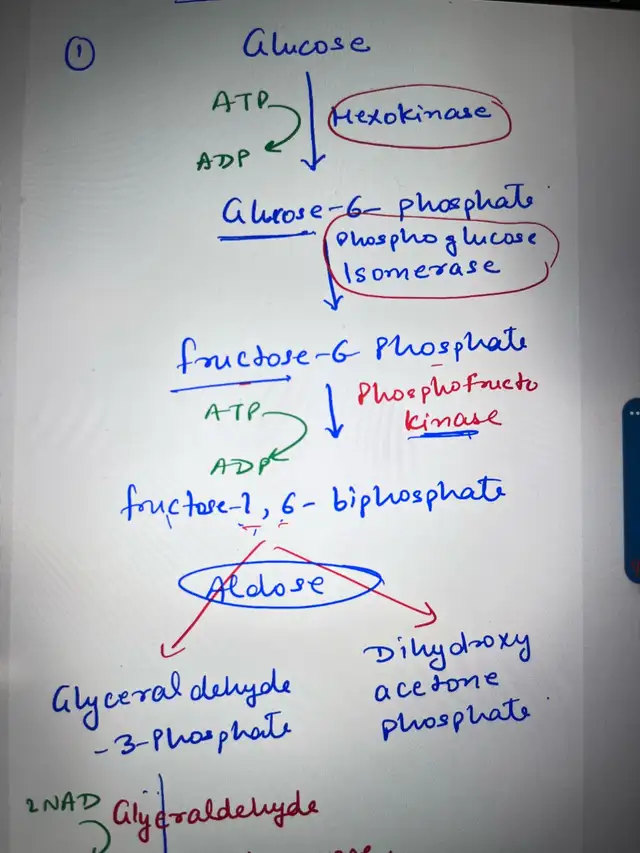 1
Glucose
ATP
Hexokinase
ADP
Glucose-6-phosphate
Phosphoglucose
Isomerase
fructose-6 Phosphate
ATP
Phosphofructo
kinase
ADP
fructose-1, 6-biphosphate
Aldose
Glyceraldehyde
-3-Phosphate
Dihydroxy
acetone
phosphate
2NAD
Glyceraldehyde